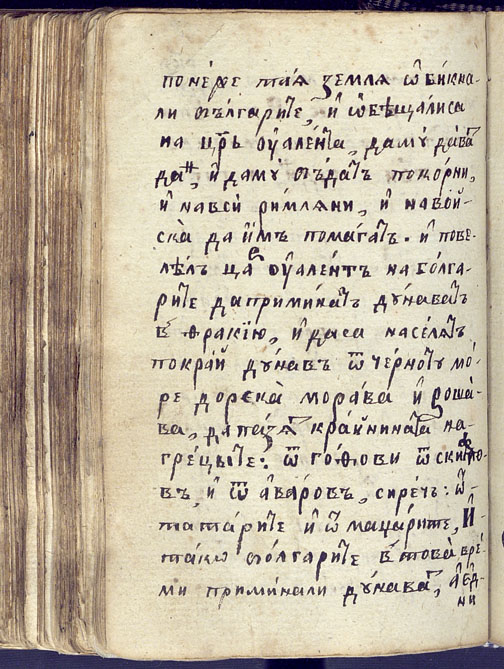 понеже таѧ землѧ ѡбикна-
ли болгарите, и ѡбѣщалиса
на цр҃ь ѹалента, даму дават
дан, и даму бѫдатъ покорни,
и навсй римлѧни, и навой-
скà да имъ помагатъ. и пове-
лѣлъ ца҃ ѹалентъ на болга-
рите даприминатъ дунаватъ
в ѳракїю, и даса населѧтъ
покрай дунавъ ѿ черноту мо-
ре дорскà морава и роша-
ва, дапазѧт крайнината на-
грецыте: ѿ гоѳови ѿ скифо-
въ, и ѿ аваровъ, сиречь: ѿ
татарите и ѿ маџарите, и
такѡ болгарите в това вре-
ми приминали дунават, а ед-
ни